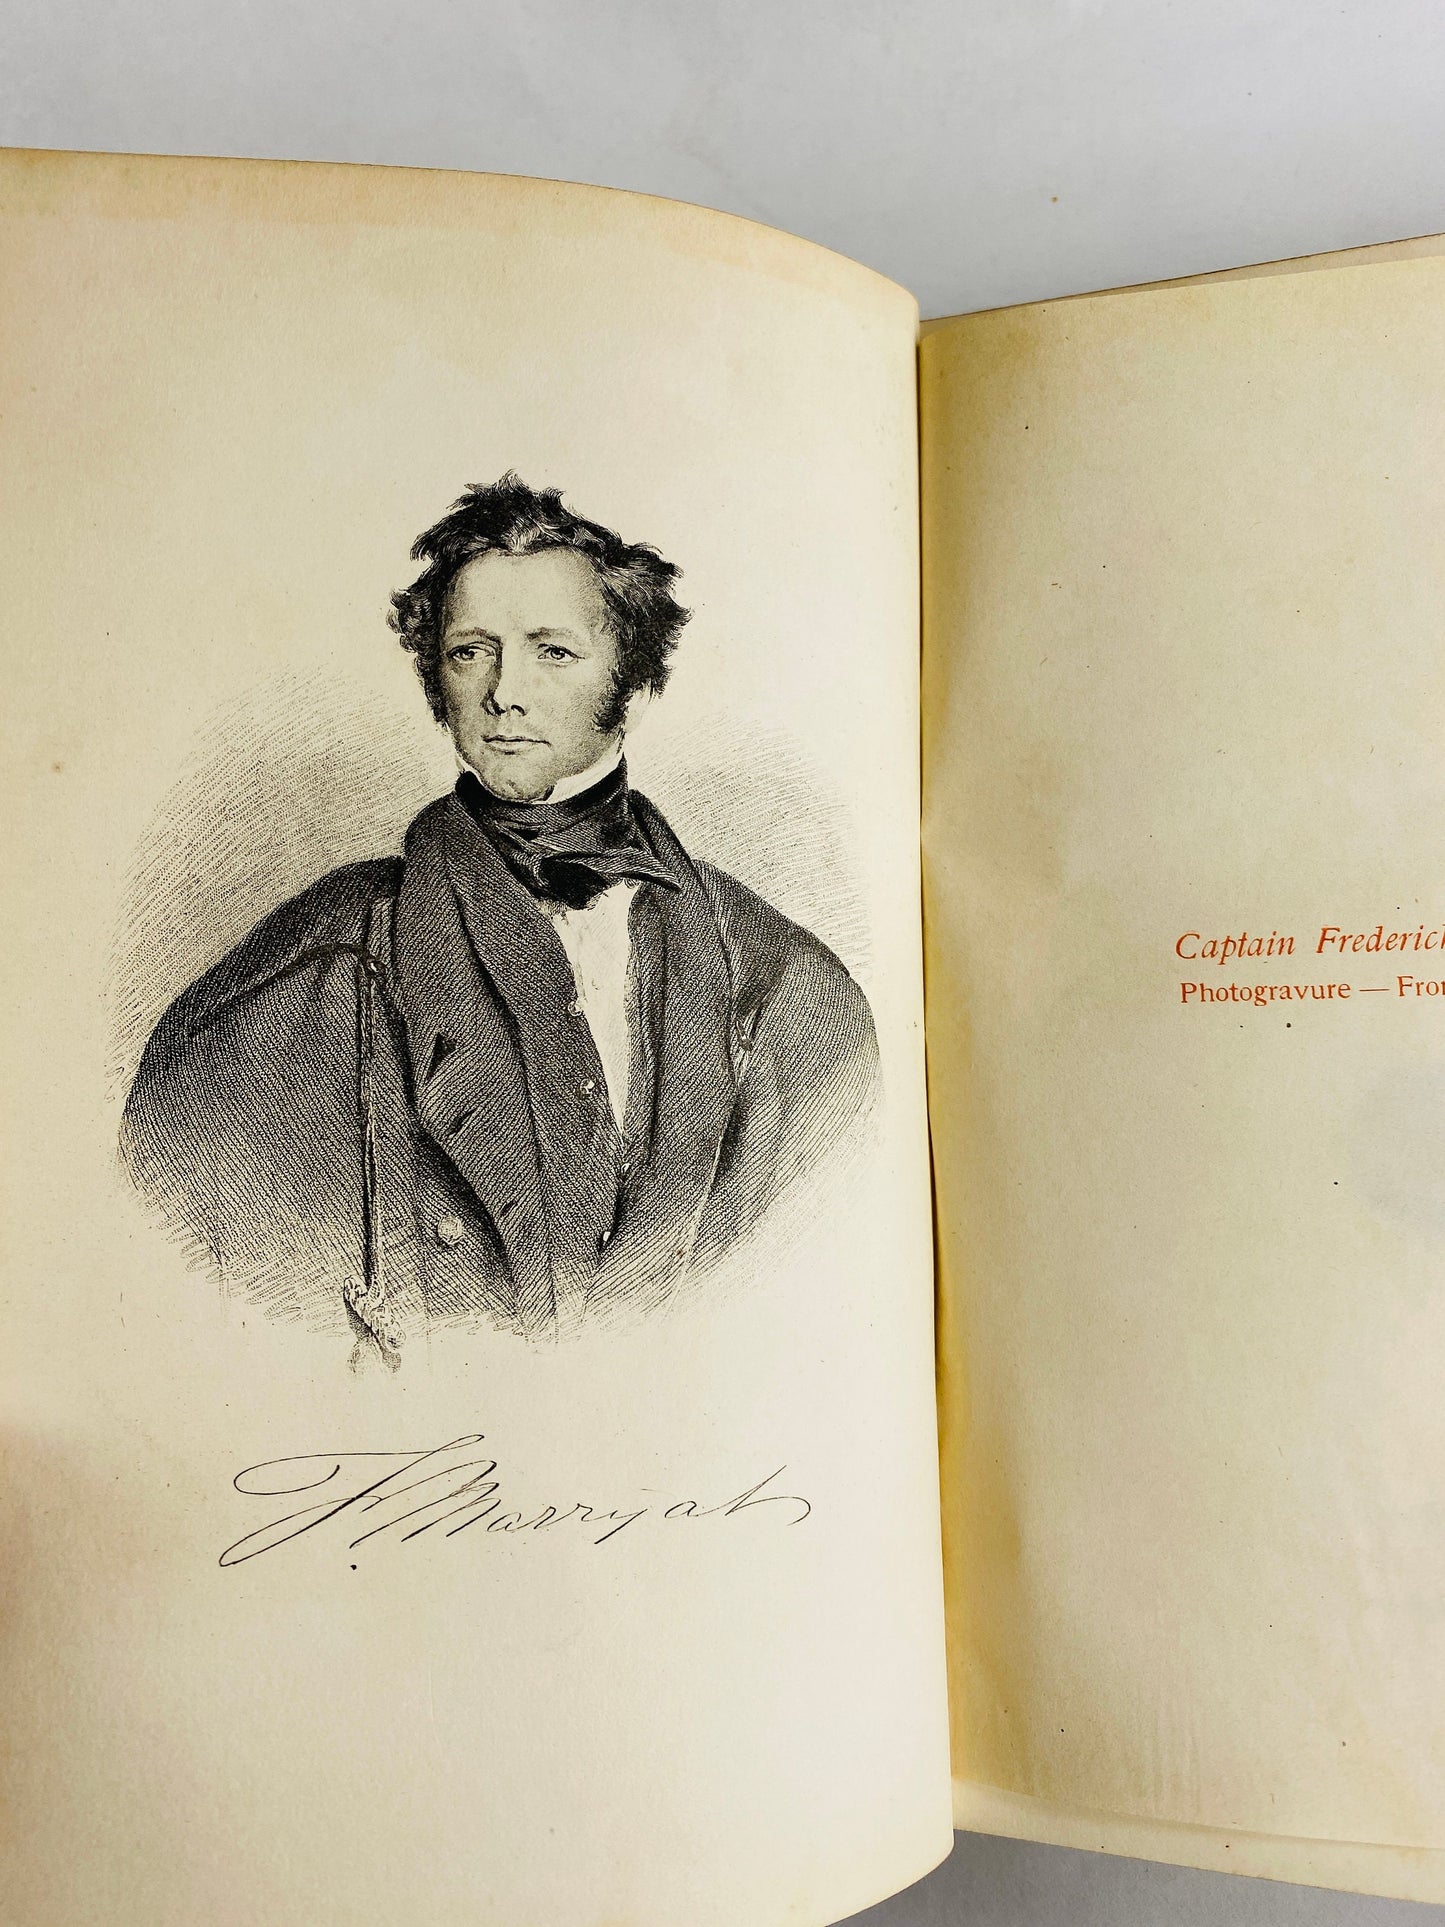 F. Marryat
Captain Frederick
Photogravure — Fron